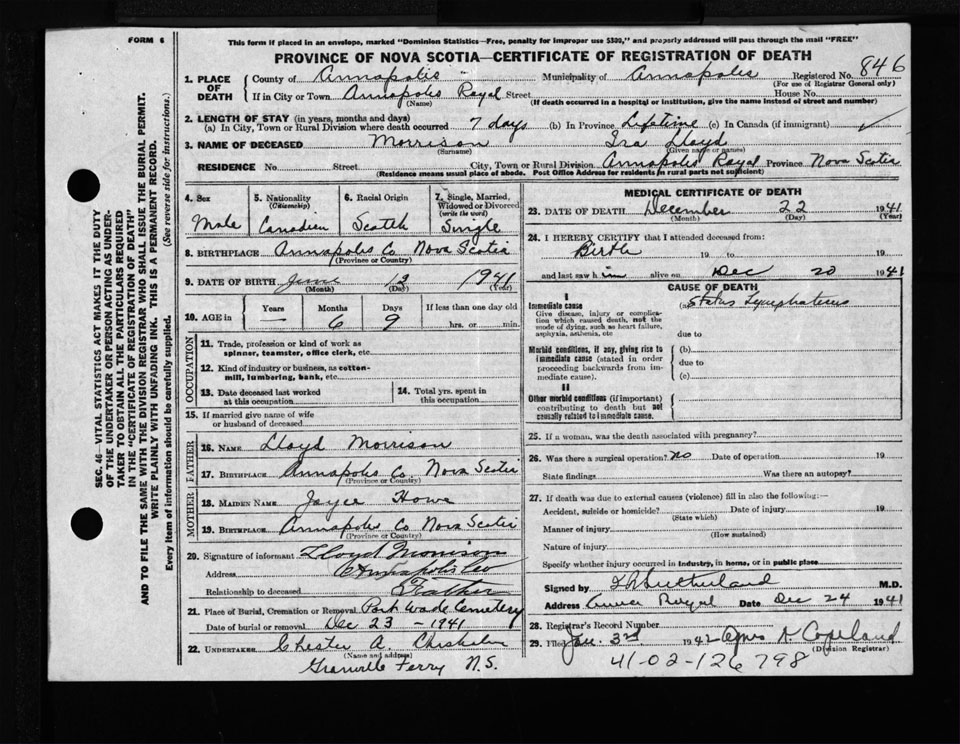 FORM 6
This form if placed in an envelope, marked "Dominion Statistics—Free, penalty for improper use $300," and properly addressed will pass through the mail "FREE"
PROVINCE OF NOVA SCOTIA—CERTIFICATE OF REGISTRATION OF DEATH
SEC. 46—VITAL STATISTICS ACT MAKES IT THE DUTY
OF THE UNDERTAKER OR PERSON ACTING AS UNDER-
TAKER TO OBTAIN ALL THE PARTICULARS REQUIRED
IN THE "CERTIFICATE OF REGISTRATION OF DEATH"
AND TO FILE THE SAME WITH THE DIVISION REGISTRAR WHO SHALL ISSUE THE BURIAL PERMIT.
WRITE PLAINLY WITH UNFADING INK. THIS IS A PERMANENT RECORD.
Every item of information should be carefully supplied. (See reverse side for instructions.)
1. PLACE OF DEATH County of Annapolis Municipality of Annapolis Registered No. 846
(For use of Registrar General only)
If in City or Town Annapolis Royal Street House No.
(Name) (If death occurred in a hospital or institution, give the name instead of street and number)
2. LENGTH OF STAY (in years, months and days)
(a) In City, Town or Rural Division where death occurred 7 days (b) In Province Lifetime (c) In Canada (if immigrant)
3. NAME OF DECEASED Morrison Ira Lloyd
(Surname) (Given name or names)
RESIDENCE No. Street City, Town or Rural Division Annapolis Royal Province Nova Scotia
(Residence means usual place of abode. Post Office Address for residents in rural parts not sufficient)
4. Sex Male
5. Nationality (Citizenship) Canadian
6. Racial Origin Scotch
7. Single, Married, Widowed or Divorced (write the word) Single
8. BIRTHPLACE Annapolis Co Nova Scotia
(Province or Country)
9. DATE OF BIRTH June 13 1941
(Month) (Day) (Year)
10. AGE in Years — Months 6 Days 9 If less than one day old hrs. or min.
OCCUPATION
11. Trade, profession or kind of work as spinner, teamster, office clerk, etc.
12. Kind of industry or business, as cotton-mill, lumbering, bank, etc.
13. Date deceased last worked at this occupation
14. Total yrs. spent in this occupation
15. If married give name of wife or husband of deceased
FATHER
16. NAME Lloyd Morrison
17. BIRTHPLACE Annapolis Co Nova Scotia
(Province or Country)
MOTHER
18. MAIDEN NAME Joyce Howe
19. BIRTHPLACE Annapolis Co Nova Scotia
(Province or Country)
20. Signature of informant Lloyd Morrison
Address Annapolis Co
Relationship to deceased Father
21. Place of Burial, Cremation or Removal Port Wade Cemetery
Date of burial or removal Dec 23 - 1941
22. UNDERTAKER Chester A. Chisholm
(Name and address)
Granville Ferry N.S.
MEDICAL CERTIFICATE OF DEATH
23. DATE OF DEATH December 22 1941
(Month) (Day) (Year)
24. I HEREBY CERTIFY that I attended deceased from:
Birth 19 to 19
and last saw him alive on Dec 20 1941
CAUSE OF DEATH
I
Immediate cause (a) Status Lymphaticus
Give disease, injury or complication which caused death, not the mode of dying, such as heart failure, asphyxia, asthenia, etc
due to
Morbid conditions, if any, giving rise to immediate cause (stated in order proceeding backwards from immediate cause).
(b)
due to
(c)
II
Other morbid conditions (if important) contributing to death but not causally related to immediate cause.
25. If a woman, was the death associated with pregnancy?
26. Was there a surgical operation? No Date of operation 19
State findings Was there an autopsy?
27. If death was due to external causes (violence) fill in also the following:—
Accident, suicide or homicide? Date of injury 19
(State which)
Manner of injury
(How sustained)
Nature of injury
Specify whether injury occurred in industry, in home, or in public place
Signed by Sutherland M.D.
Address Royal Date Dec 24 1941
28. Registrar's Record Number
29. Filed Jan. 3rd 1942 Copeland
(Division Registrar)
41-02-126798